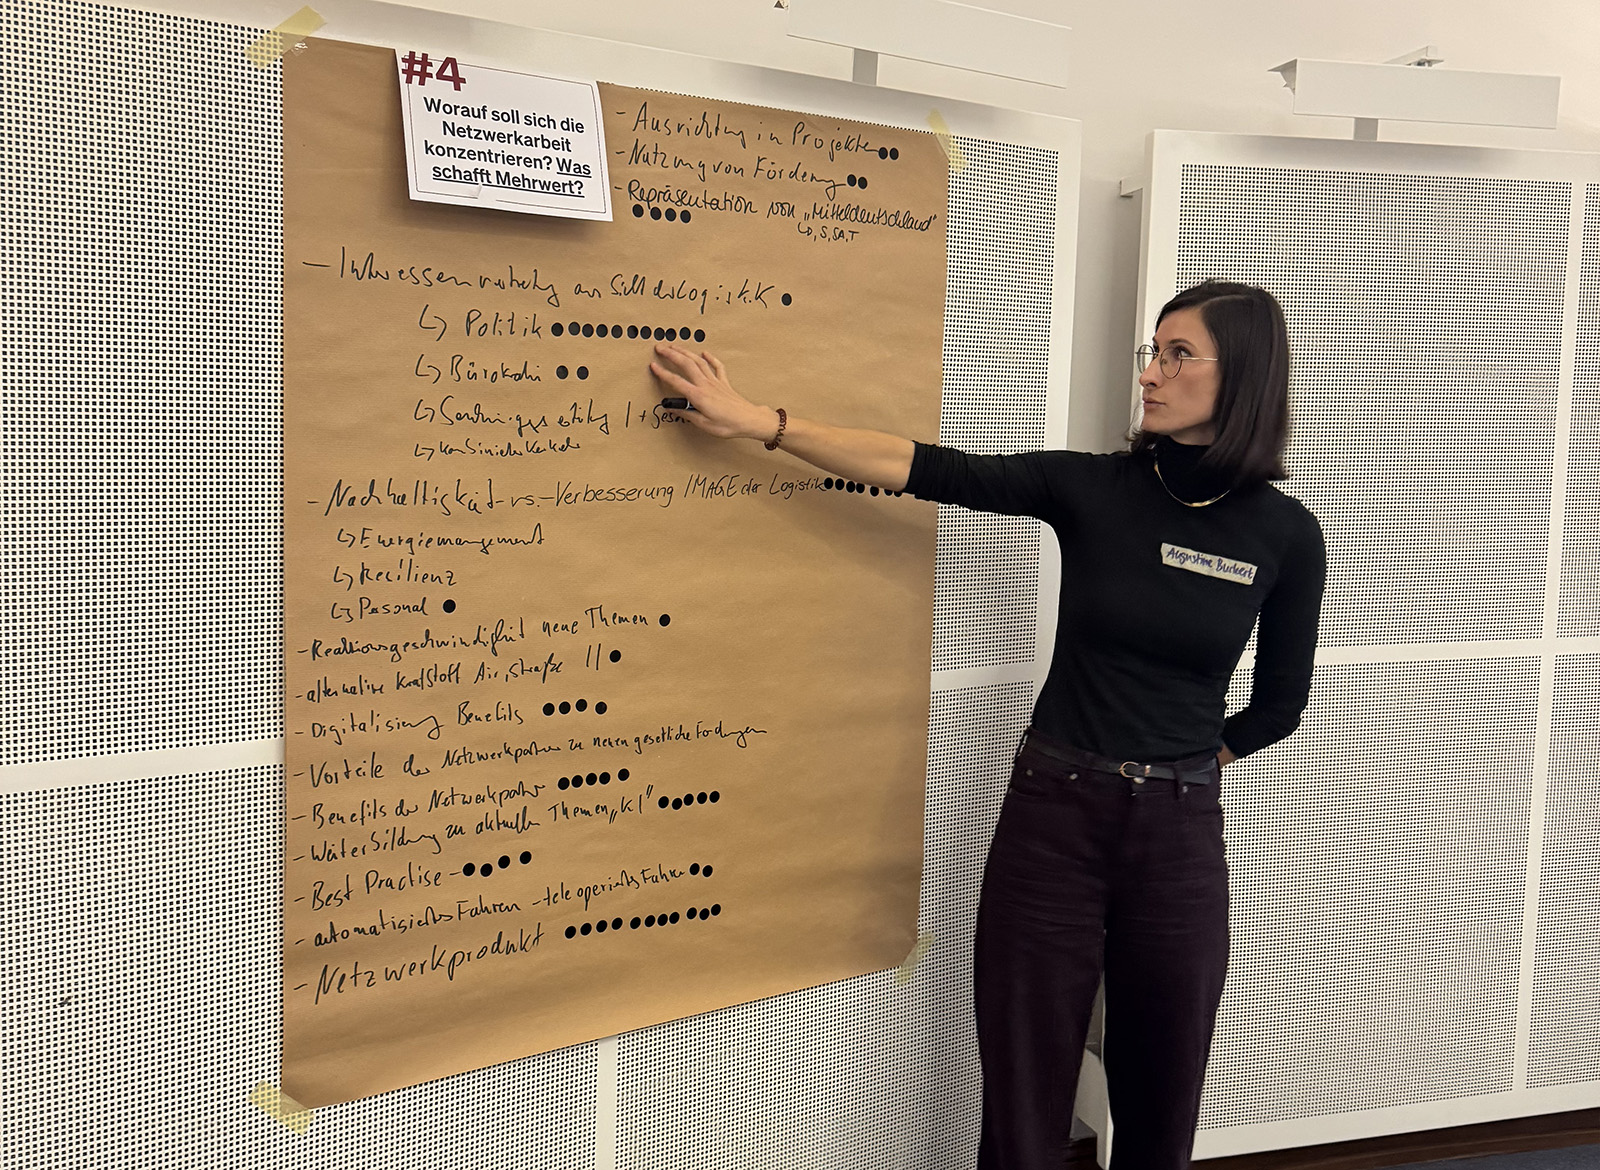 #4
Worauf soll sich die
Netzwerkarbeit
konzentrieren? Was
schafft Mehrwert?
- Ausrichtung in Projekten
- Nutzung von Förderung
- Repräsentation von „Mitteldeutschland"
↳ D, S, SA, T
- Interessenvertretung aus Sicht der Logistik
↳ Politik
↳ Bürokratie
↳
↳ kombinierter Verkehr
- Nachhaltigkeit -vs.- Verbesserung IMAGE der Logistik
↳ Energiemanagement
↳ Resilienz
↳ Personal
- Reaktionsgeschwindigkeit neue Themen
- alternative Kraftstoff Air, Straße ||
- Digitalisierung Benefits
- Vorteile der Netzwerkpartner zu neuen gesetzliche Fordungen
- Benefits der Netzwerkpartner
- Weiterbildung zu aktuellen Themen „KI"
- Best Practise -
- automatisiertes Fahren - teleoperiertes Fahren
- Netzwerkprodukt
Augustine Burkert